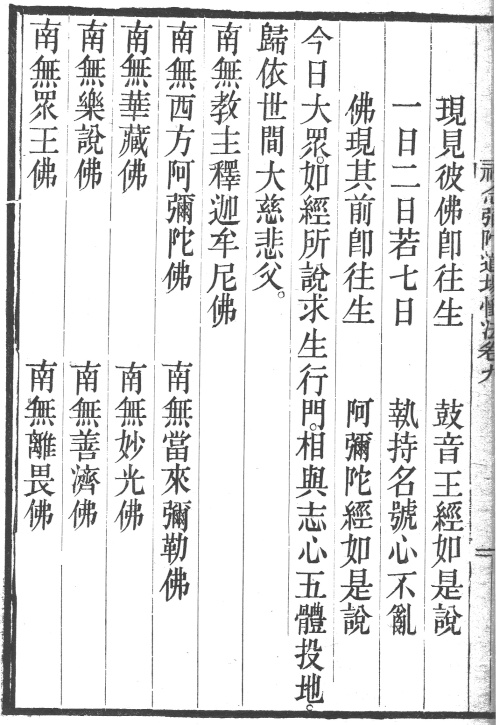 現見彼佛卽往生　鼓音王經如是說
一日二日若七日　執持名號心不亂
佛現其前卽往生　阿彌陀經如是說
今日大眾。如經所說求生行門。相與志心五體投地。
歸依世間大慈悲父。
南無教主釋迦牟尼佛
南無西方阿彌陀佛　南無當來彌勒佛
南無華藏佛　南無妙光佛
南無樂說佛　南無善濟佛
南無眾王佛　南無離畏佛